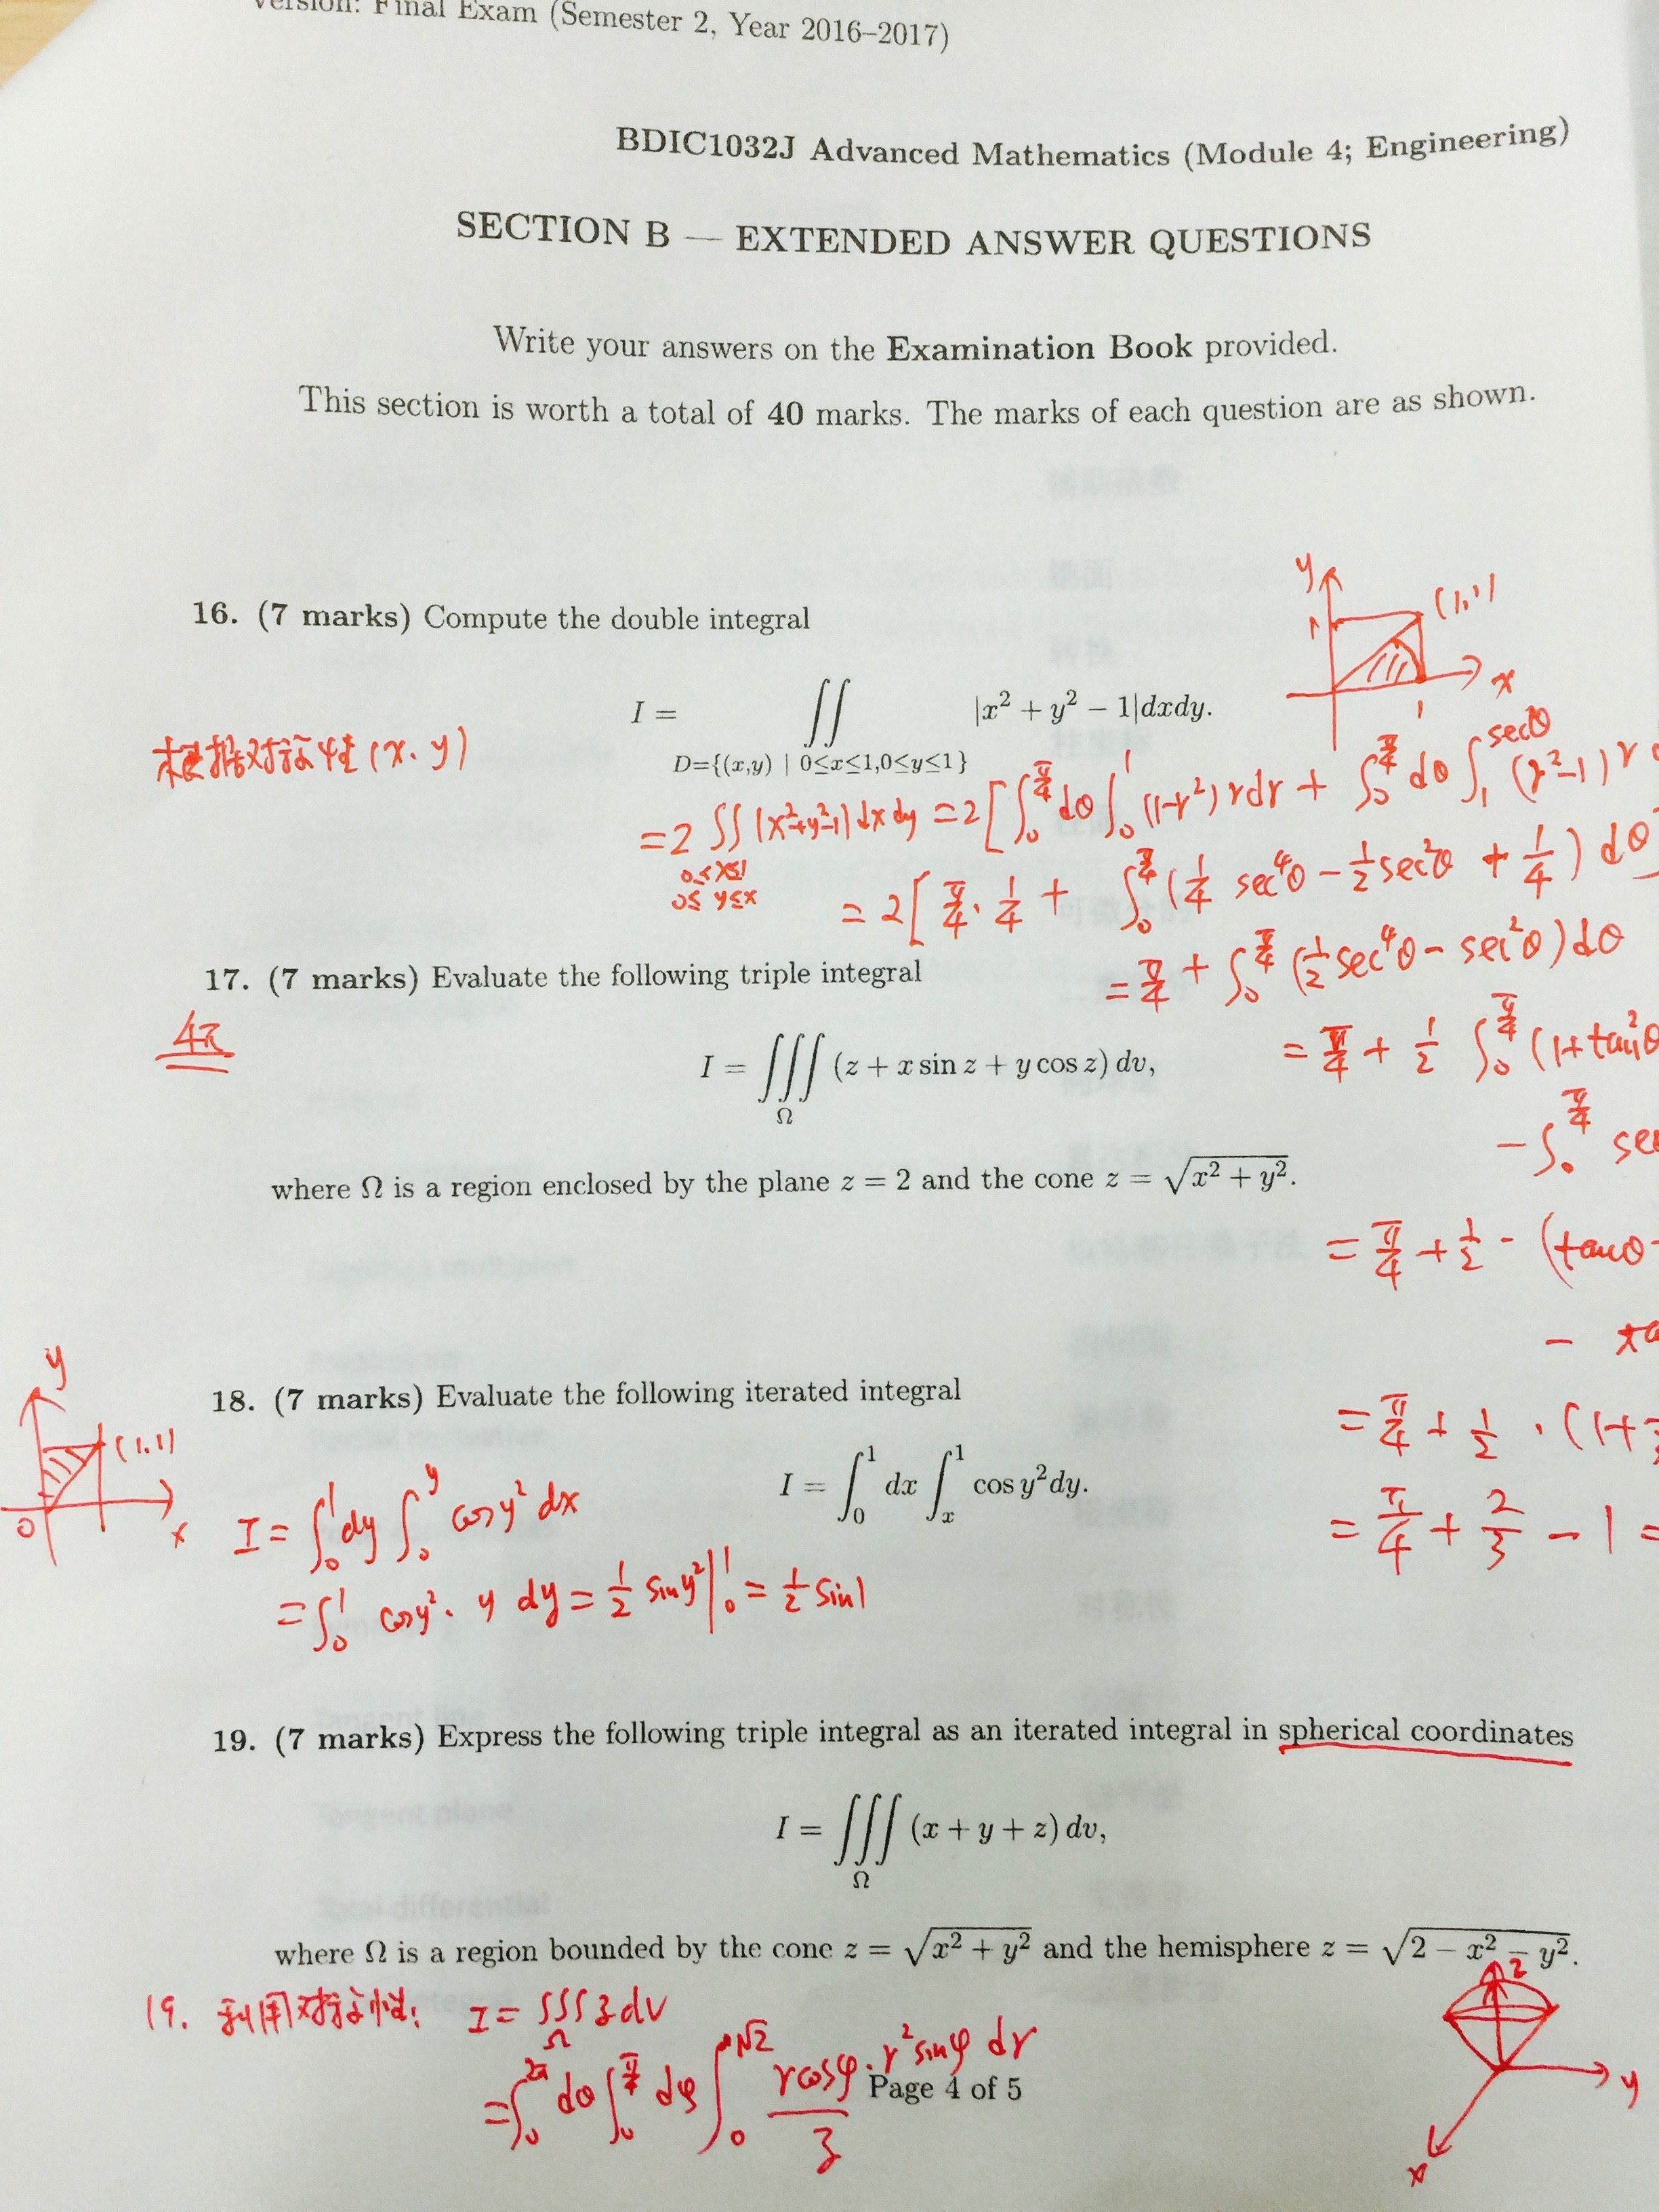 Version: Final Exam (Semester 2, Year 2016–2017)
BDIC1032J Advanced Mathematics (Module 4; Engineering)
SECTION B — EXTENDED ANSWER QUESTIONS
Write your answers on the Examination Book provided.
This section is worth a total of 40 marks. The marks of each question are as shown.
y
(1,1)
1
x
1
16. (7 marks) Compute the double integral
I = ∬ |x² + y² − 1|dxdy.
D={(x,y) | 0≤x≤1,0≤y≤1}
根据对称性(x、y)
=2 ∬ |x²+y²-1| dx dy = 2[∫₀^{π/4} dθ ∫₀^1 (1-r²) r dr + ∫₀^{π/4} dθ ∫₁^{secθ} (r²-1) r
0≤x≤1
0≤y≤x
= 2[π/4 · 1/4 + ∫₀^{π/4} (1/4 sec⁴θ - 1/2 sec²θ + 1/4) dθ]
= π/4 + ∫₀^{π/4} (1/2 sec⁴θ - sec²θ) dθ
= π/4 + 1/2 ∫₀^{π/4} (1+tan²θ
- ∫₀^{π/4}
= π/4 + 1/2 · (tanθ
= π/4 + 1/2 · (1+
= π/4 + 2/3 - 1 =
17. (7 marks) Evaluate the following triple integral
4π
I = ∭ (z + x sin z + y cos z) dv,
Ω
where Ω is a region enclosed by the plane z = 2 and the cone z = √(x² + y²).
18. (7 marks) Evaluate the following iterated integral
I = ∫₀^1 dx ∫ₓ^1 cos y²dy.
y
(1.1)
0
x
I = ∫₀^1 dy ∫₀^y cosy² dx
= ∫₀^1 cosy² · y dy = 1/2 siny²|₀^1 = 1/2 sin1
19. (7 marks) Express the following triple integral as an iterated integral in spherical coordinates
I = ∭ (x + y + z) dv,
Ω
where Ω is a region bounded by the cone z = √(x² + y²) and the hemisphere z = √(2 − x² − y²).
19. 利用对称性: I = ∭ z dv
Ω
= ∫₀^{2π} dθ ∫₀^{π/4} dφ ∫₀^{√2} r cosφ · r² sinφ dr
z
z
y
x
Page 4 of 5